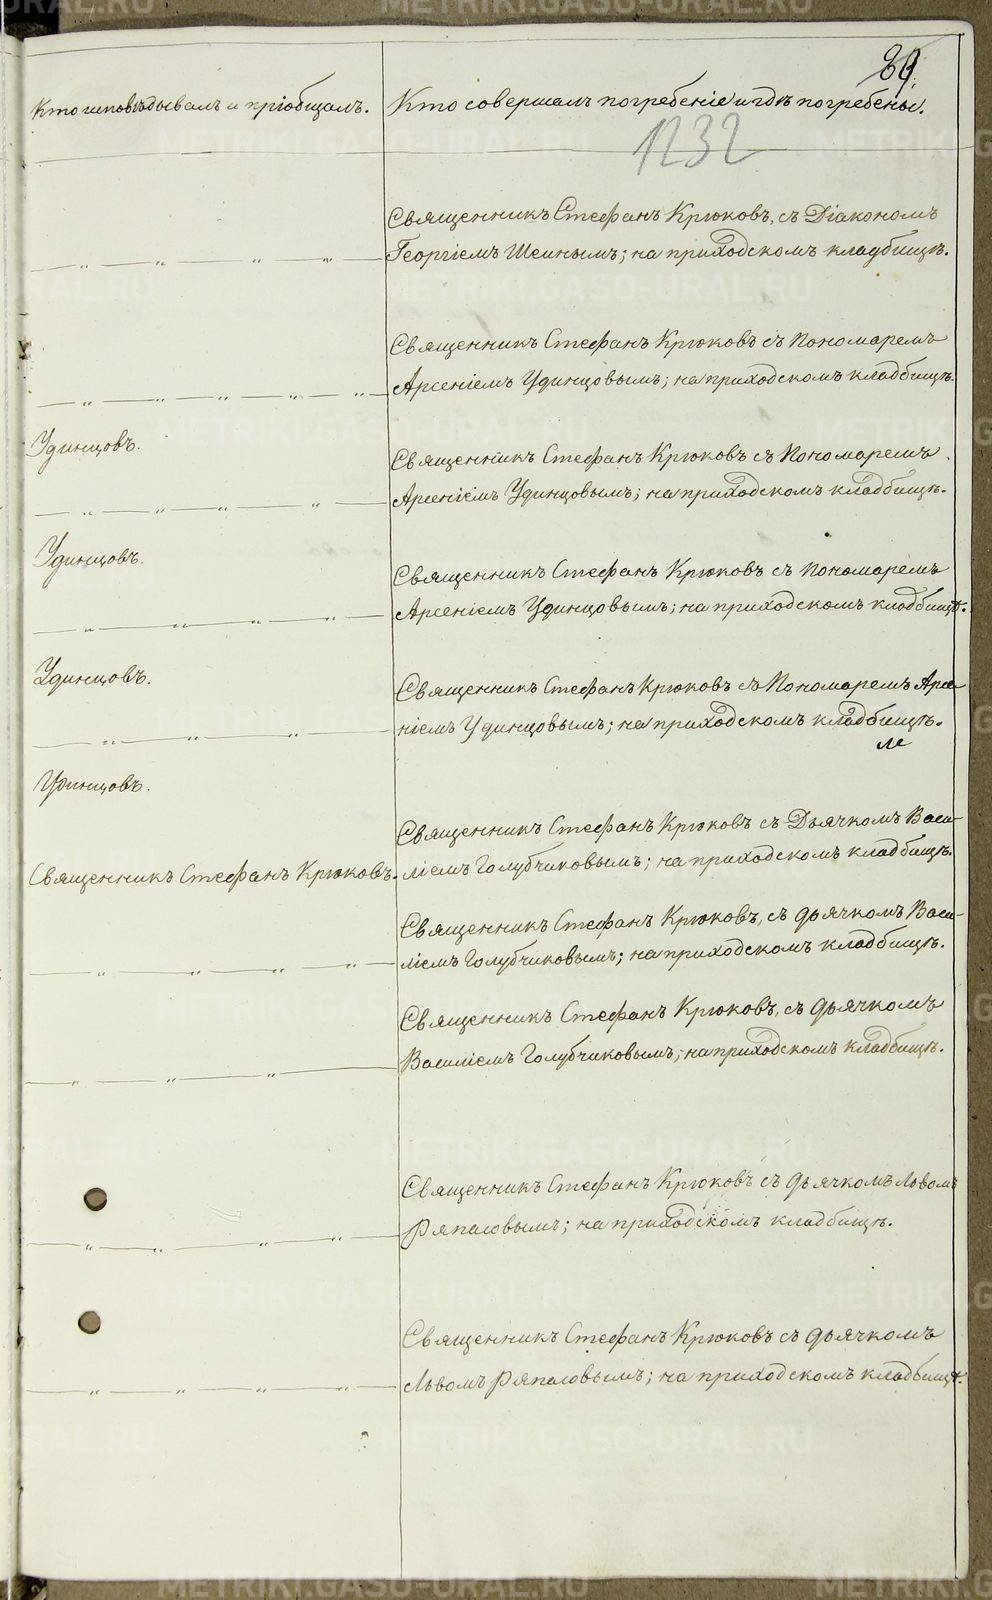 89
Кто исповѣдывалъ и пріобщалъ.
Кто совершалъ погребеніе и гдѣ погребены.
1232
Священникъ Стефанъ Крюковъ, съ Діакономъ
Георгіемъ Шеинымъ; на приходскомъ кладбищѣ.
Священникъ Стефанъ Крюковъ съ Пономаремъ
Арсеніемъ Удинцовымъ; на приходскомъ кладбищѣ.
Удинцовъ.
Священникъ Стефанъ Крюковъ съ Пономаремъ
Арсеніемъ Удинцовымъ; на приходскомъ кладбищѣ.
Удинцовъ.
Священникъ Стефанъ Крюковъ съ Пономаремъ
Арсеніемъ Удинцовымъ; на приходскомъ кладбищѣ.
Удинцовъ.
Священникъ Стефанъ Крюковъ съ Пономаремъ Арсе-
ніемъ Удинцовымъ; на приходскомъ кладбищѣ.
Удинцовъ.
Священникъ Стефанъ Крюковъ съ Дьячкомъ Васи-
Священникъ Стефанъ Крюковъ.
ліемъ Голубчиковымъ; на приходскомъ кладбищѣ.
Священникъ Стефанъ Крюковъ, съ дьячкомъ Васи-
ліемъ Голубчиковымъ; на приходскомъ кладбищѣ.
Священникъ Стефанъ Крюковъ, съ дьячкомъ
Василіемъ Голубчиковымъ; на приходскомъ кладбищѣ.
Священникъ Стефанъ Крюковъ съ дьячкомъ Львомъ
Ряпасовымъ; на приходскомъ кладбищѣ.
Священникъ Стефанъ Крюковъ съ дьячкомъ
Львомъ Ряпасовымъ; на приходскомъ кладбищѣ.
METRIKI.GASO-URAL.RU